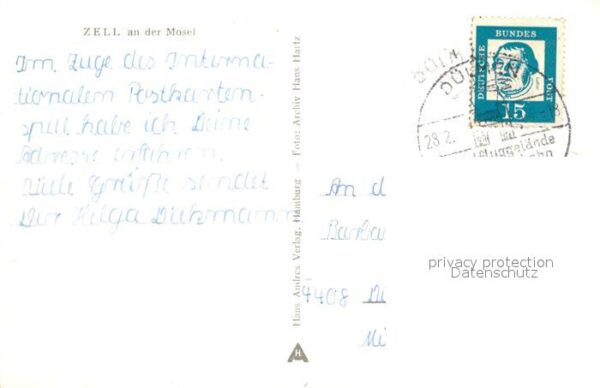 ZELL an der Mosel
Im Zuge des Interna-
tionalen Postkarten-
spiel habe ich Deine
Adresse erfahren.
Viele Grüße sendet
Dir Helga Diekmann
Hans Andres Verlag, Hamburg - Foto: Archiv Hans Hartz
H
DEUTSCHE
BUNDES
POST
15
DÜLMEN
28.2.
An d
Barba
4408 Dü
Mi
privacy protection
Datenschutz